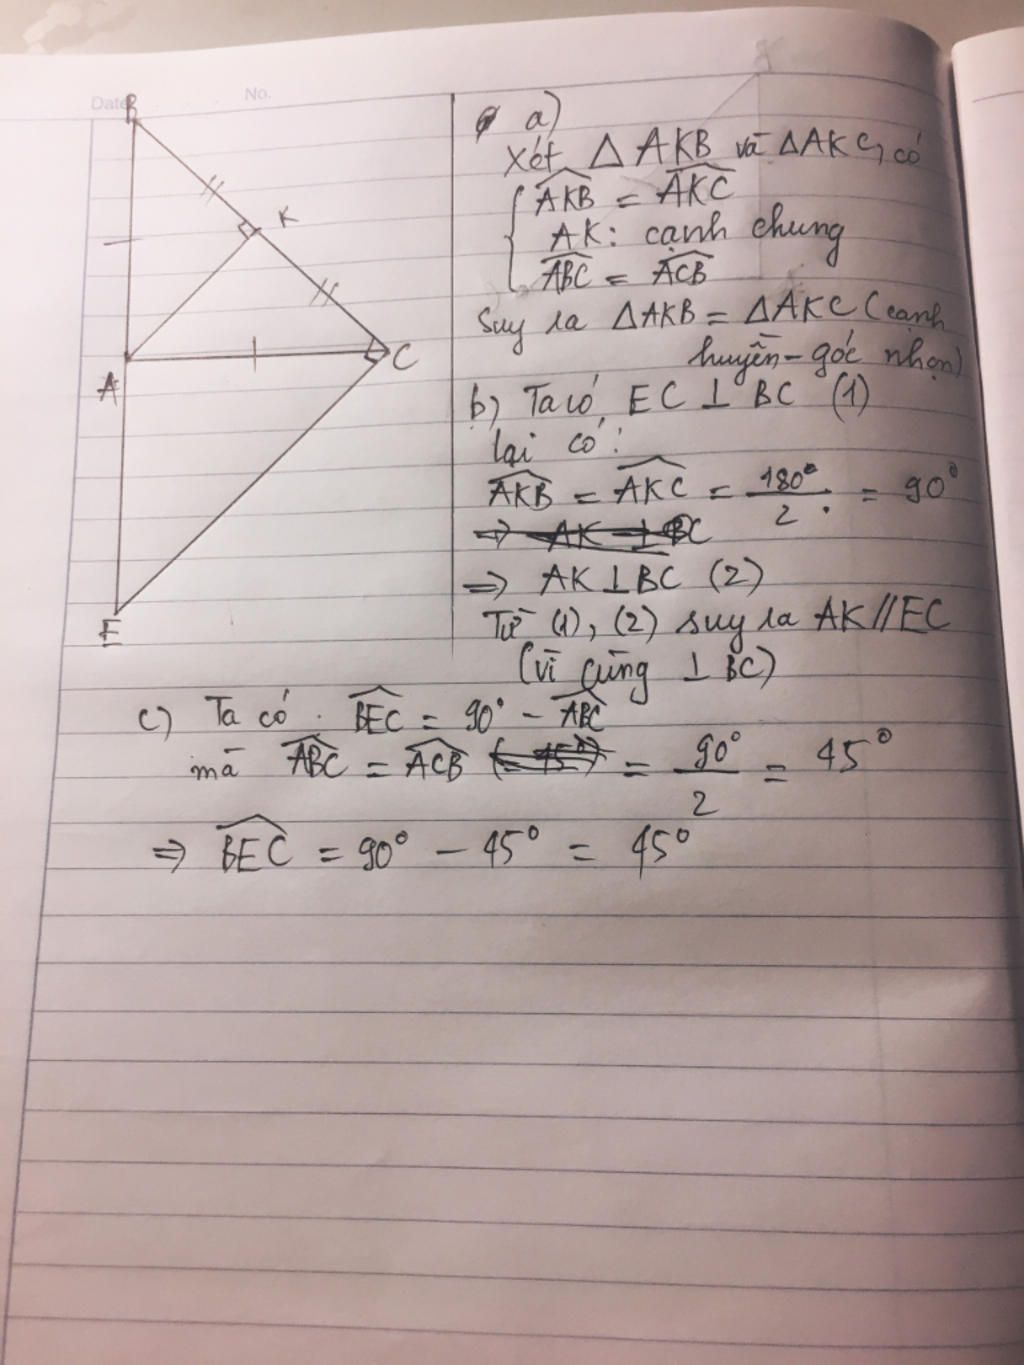 Date
No.
B
K
A
C
E
a)
Xét △ AKB và △AKC, có
{ \widehat{AKB} = \widehat{AKC}
AK: cạnh chung
\widehat{ABC} = \widehat{ACB}
Suy ra △AKB = △AKC (cạnh
huyền - góc nhọn)
b) Ta có EC ⊥ BC (1)
lại có:
\widehat{AKB} = \widehat{AKC} = \frac{180°}{2} = 90°
⇒ AK ⊥ BC
⇒ AK ⊥ BC (2)
Từ (1), (2) suy ra AK // EC
(vì cùng ⊥ BC)
c) Ta có. \widehat{BEC} = 90° - \widehat{ABC}
mà \widehat{ABC} = \widehat{ACB} (= 45°) = \frac{90°}{2} = 45°
⇒ \widehat{BEC} = 90° - 45° = 45°